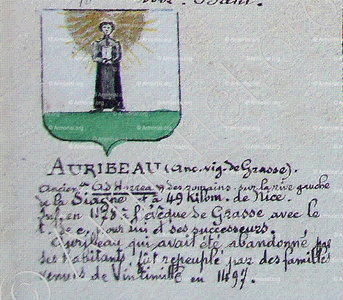 AURIBEAU (anc. vig. de Grasse).
Ancien Ad Horrea des romains, sur la rive gauche
de la Siagne à 49 Kilom. de Nice.
fief en 1158 à l'évêque de Grasse avec le
pour lui et ses successeurs.
Auribeau qui avait été abandonné par
ses habitants, fut repeuplé par des familles
venues de Vintimille en 1497.